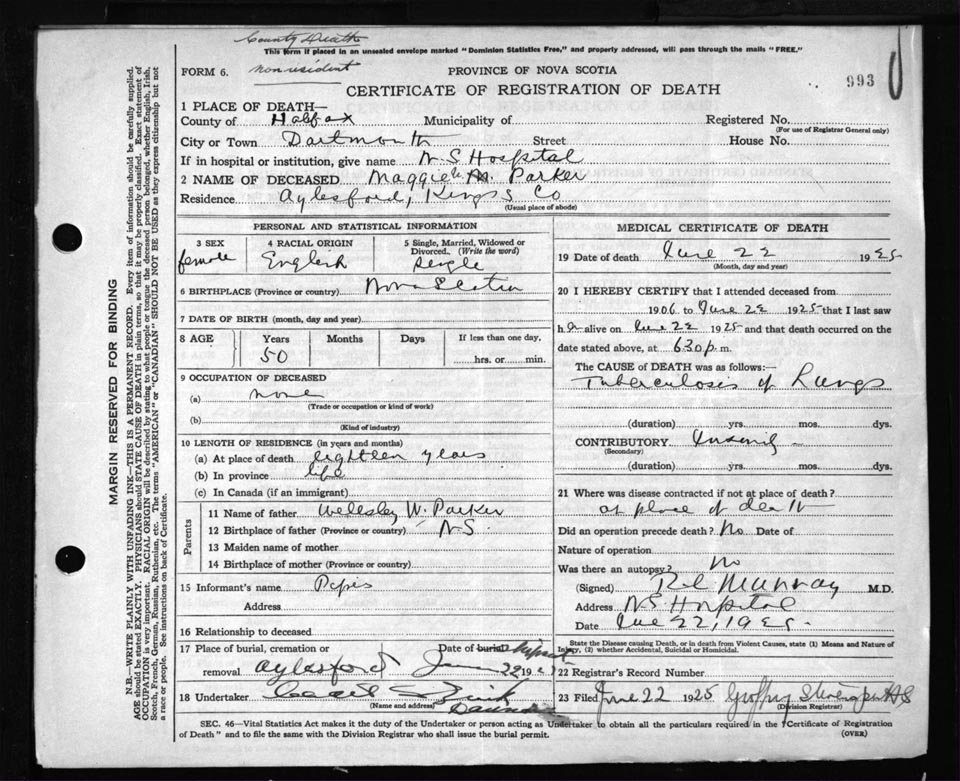 County Death
This form if placed in an unsealed envelope marked "Dominion Statistics Free," and properly addressed, will pass through the mails "FREE."
FORM 6. non resident PROVINCE OF NOVA SCOTIA
CERTIFICATE OF REGISTRATION OF DEATH 993
1 PLACE OF DEATH—
County of Halifax Municipality of Registered No.
(For use of Registrar General only)
City or Town Dartmouth Street House No.
If in hospital or institution, give name N.S Hospital
2 NAME OF DECEASED Maggie M. Parker
Residence Aylesford, Kings Co
(Usual place of abode)
PERSONAL AND STATISTICAL INFORMATION
3 SEX 4 RACIAL ORIGIN 5 Single, Married, Widowed or Divorced. (Write the word)
female English Single
6 BIRTHPLACE (Province or country) Nova Scotia
7 DATE OF BIRTH (month, day and year)
8 AGE Years Months Days If less than one day,
50 hrs. or min.
9 OCCUPATION OF DECEASED
(a) none
(Trade or occupation or kind of work)
(b)
(Kind of industry)
10 LENGTH OF RESIDENCE (in years and months)
(a) At place of death eighteen years
(b) In province life
(c) In Canada (if an immigrant)
Parents
11 Name of father Wellesley W. Parker
12 Birthplace of father (Province or country) N.S.
13 Maiden name of mother
14 Birthplace of mother (Province or country)
15 Informant's name
Address
16 Relationship to deceased
17 Place of burial, cremation or Date of burial
removal Aylesford June 22 192
18 Undertaker
(Name and address)
MEDICAL CERTIFICATE OF DEATH
19 Date of death June 22 1925
(Month, day and year)
20 I HEREBY CERTIFY that I attended deceased from
1906 to June 22 1925 that I last saw
h alive on June 22 1925 and that death occurred on
date stated above, at 630 p. m.
The CAUSE of DEATH was as follows:—
Tuberculosis of Lungs
(duration) yrs. mos. dys.
CONTRIBUTORY Insanity
(Secondary)
(duration) yrs. mos. dys.
21 Where was disease contracted if not at place of death?
at place of death
Did an operation precede death? No Date of
Nature of operation
Was there an autopsy? no
(Signed) Murray M.D.
Address NS Hospital
Date June 22, 1925.
State the Disease causing Death, or in death from Violent Causes, state (1) Means and Nature of
Injury, (2) whether Accidental, Suicidal or Homicidal.
22 Registrar's Record Number
23 Filed June 22 1925
(Division Registrar)
SEC. 46—Vital Statistics Act makes it the duty of the Undertaker or person acting as Undertaker to obtain all the particulars required in the "Certificate of Registration
of Death" and to file the same with the Division Registrar who shall issue the burial permit. (OVER)
MARGIN RESERVED FOR BINDING
N.B.—WRITE PLAINLY WITH UNFADING INK—THIS IS A PERMANENT RECORD. Every item of information should be carefully supplied.
AGE should be stated EXACTLY. PHYSICIANS should STATE CAUSE OF DEATH in plain terms, so that it may be properly classified. Exact statement of
OCCUPATION is very important. RACIAL ORIGIN will be described by stating to what people or tongue the deceased person belonged, whether English, Irish,
Scotch, French, German, Russian, Ruthenian, etc. The terms "AMERICAN" or "CANADIAN" SHOULD NOT BE USED as they express citizenship but not
a race or people. See instructions on back of Certificate.